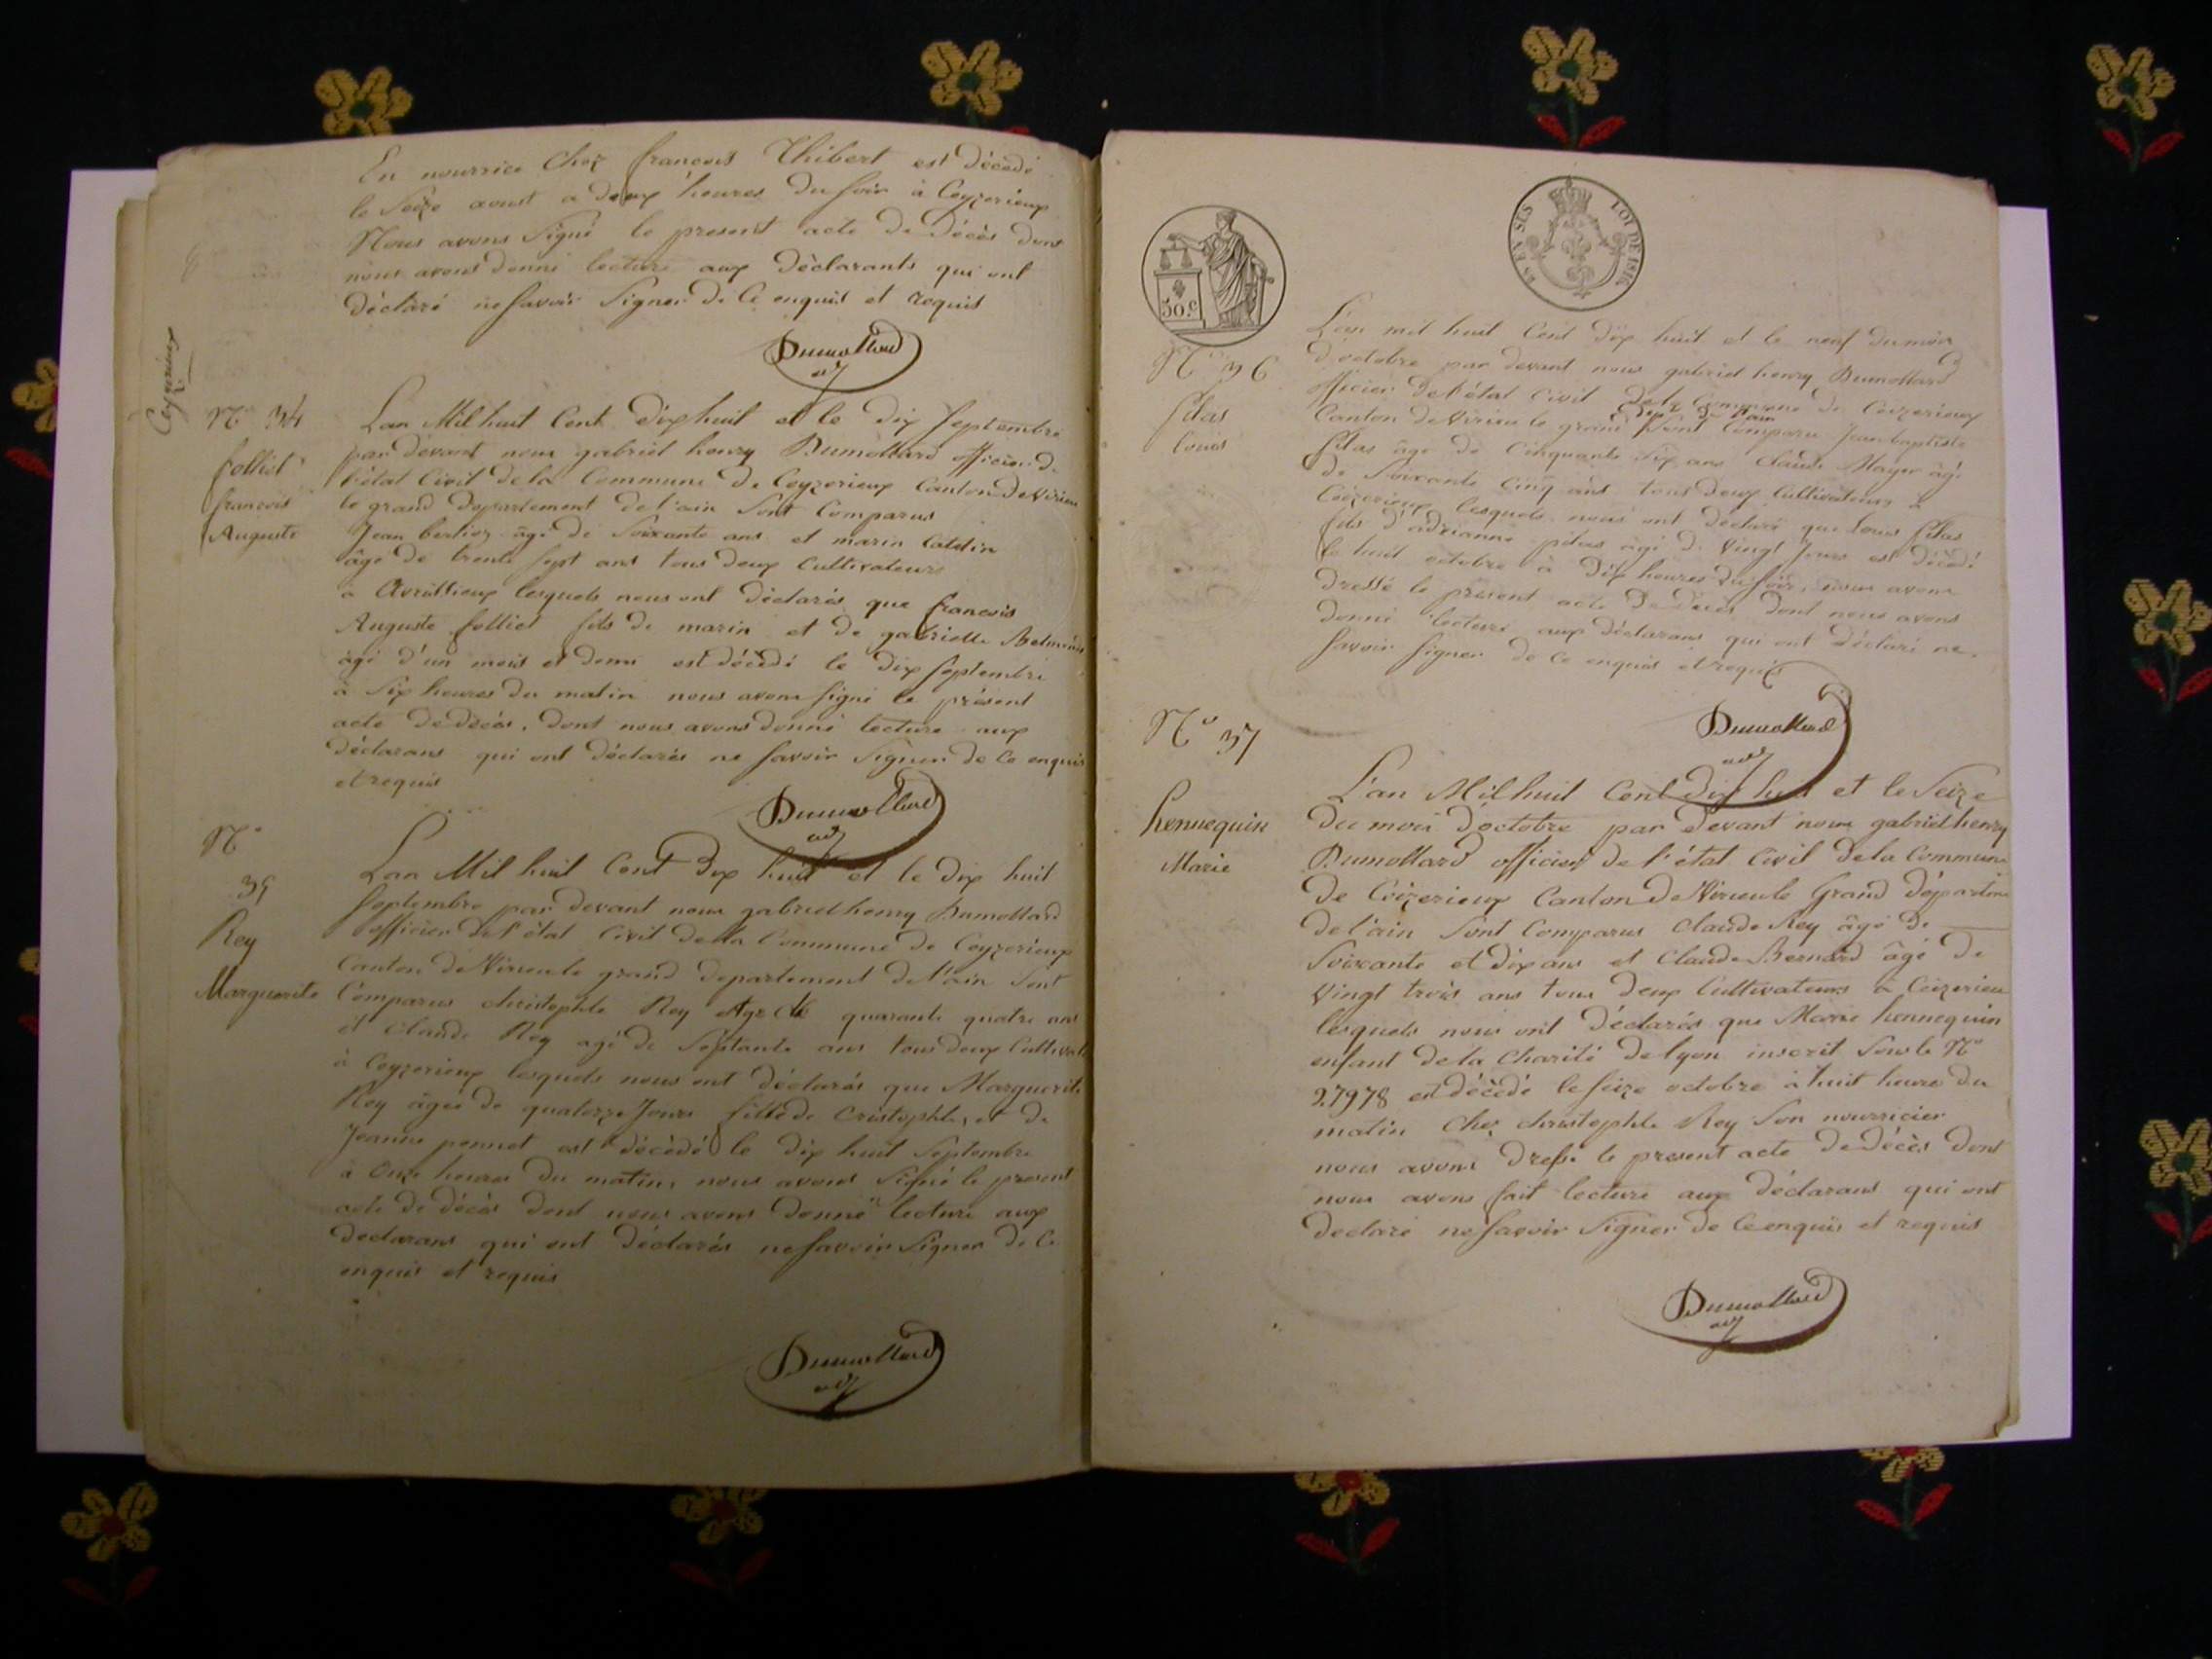 En nourrice Chez françois Thibert est décédé
le Seize aoust a deux heures du soir à Ceyzerieux
Nous avons Signé le present acte de Décès dont
nous avons donné lecture aux Déclarants qui ont
déclaré ne savoir Signer de Ce enquis et requis
Dumollard
adj
Ceyzerieux
N° 34
folliet
françois
Auguste
L'an Mil huit Cent Dix huit et le Dix Septembre
par devant nous gabriel henry Dumollard officier de
l'état Civil de la Commune de Ceyzerieux Canton de Virieu
le grand Departement de l'ain Sont Comparus
Jean berlioz âgé de Soixante ans et marin
âgé de trente Sept ans tous deux Cultivateurs
à Avrissieux lesquels nous ont déclarés que francois
Auguste folliet fils de marin et de gabrielle
âgé d'un mois et demi est décédé le Dix Septembre
à Six heures du matin nous avons Signé le présent
acte de décès, dont nous avons donné lecture aux
déclarans qui ont déclarés ne Savoir Signer de Ce enquis
et requis
Dumollard
adj
N°
35
Rey
Marguerite
L'an Mil huit Cent Dix huit et le Dix huit
Septembre par devant nous gabriel henry Dumollard
officier de l'état Civil de la Commune de Ceyzerieux
Canton de Virieu le grand Departement de l'ain Sont
Comparus christophle Rey Agé de quarante quatre ans
et Claude Rey agé de Septante ans tous deux
à Ceyzerieux lesquels nous ont Déclarés que Marguerite
Rey âgée de quatorze Jours fille de Cristophle, et de
Jeanne ponnet est décédé le Dix huit Septembre
à Onze heures du matin, nous avons Signé le present
acte de décès dont nous avons Donné lecture aux
declarans qui ont Déclarés ne Savoir Signer de Ce
enquis et requis
Dumollard
adj
50 c
LOI DE 1816
N° 36
filas
Louis
L'an mil huit Cent Dix huit et le neuf du mois
d'octobre par devant nous gabriel henry Dumollard
officier de l'état Civil de la Commune de Ceizerieux
Canton de Virieu le grand Sont Comparu Jean baptiste
filas âgé de Cinquante Six ans Claude Mayer âgé
de Soixante Cinq ans tous deux Cultivateurs à
Ceizerieux lesquels nous ont Déclaré que Louis filas
fils d'adrianne filas âgé de Vingt Jours est décédé
le huit octobre à Dix heures du Soir, nous avons
Dressé le présent acte de Décès Dont nous avons
donné lecture aux déclarans qui ont Déclaré ne
Savoir Signer de Ce enquis et requis
Dumollard
adj
N° 37
hennequin
Marie
L'an Mil huit Cent Dix huit et le Seize
Du mois d'octobre par Devant nous gabriel henry
Dumollard officier de l'état Civil de la Commune
De Ceizerieux Canton de Virieu le Grand
de l'ain Sont Comparus Claude Rey âgé de
Soixante et dix ans et Claude Bernard âgé de
Vingt trois ans tous Deux Cultivateurs à Ceizerieu
lesquels nous ont Déclarés que Marie hennequin
enfant de la Charité de lyon inscrit Sous le N°
27978 est décédé le Seize octobre à huit heure du
matin Chez christophle Rey Son nourricier
nous avons Dressé le present acte de Décès Dont
nous avons fait lecture aux déclarans qui ont
declaré ne Savoir Signer de Ce enquis et requis
Dumollard
adj